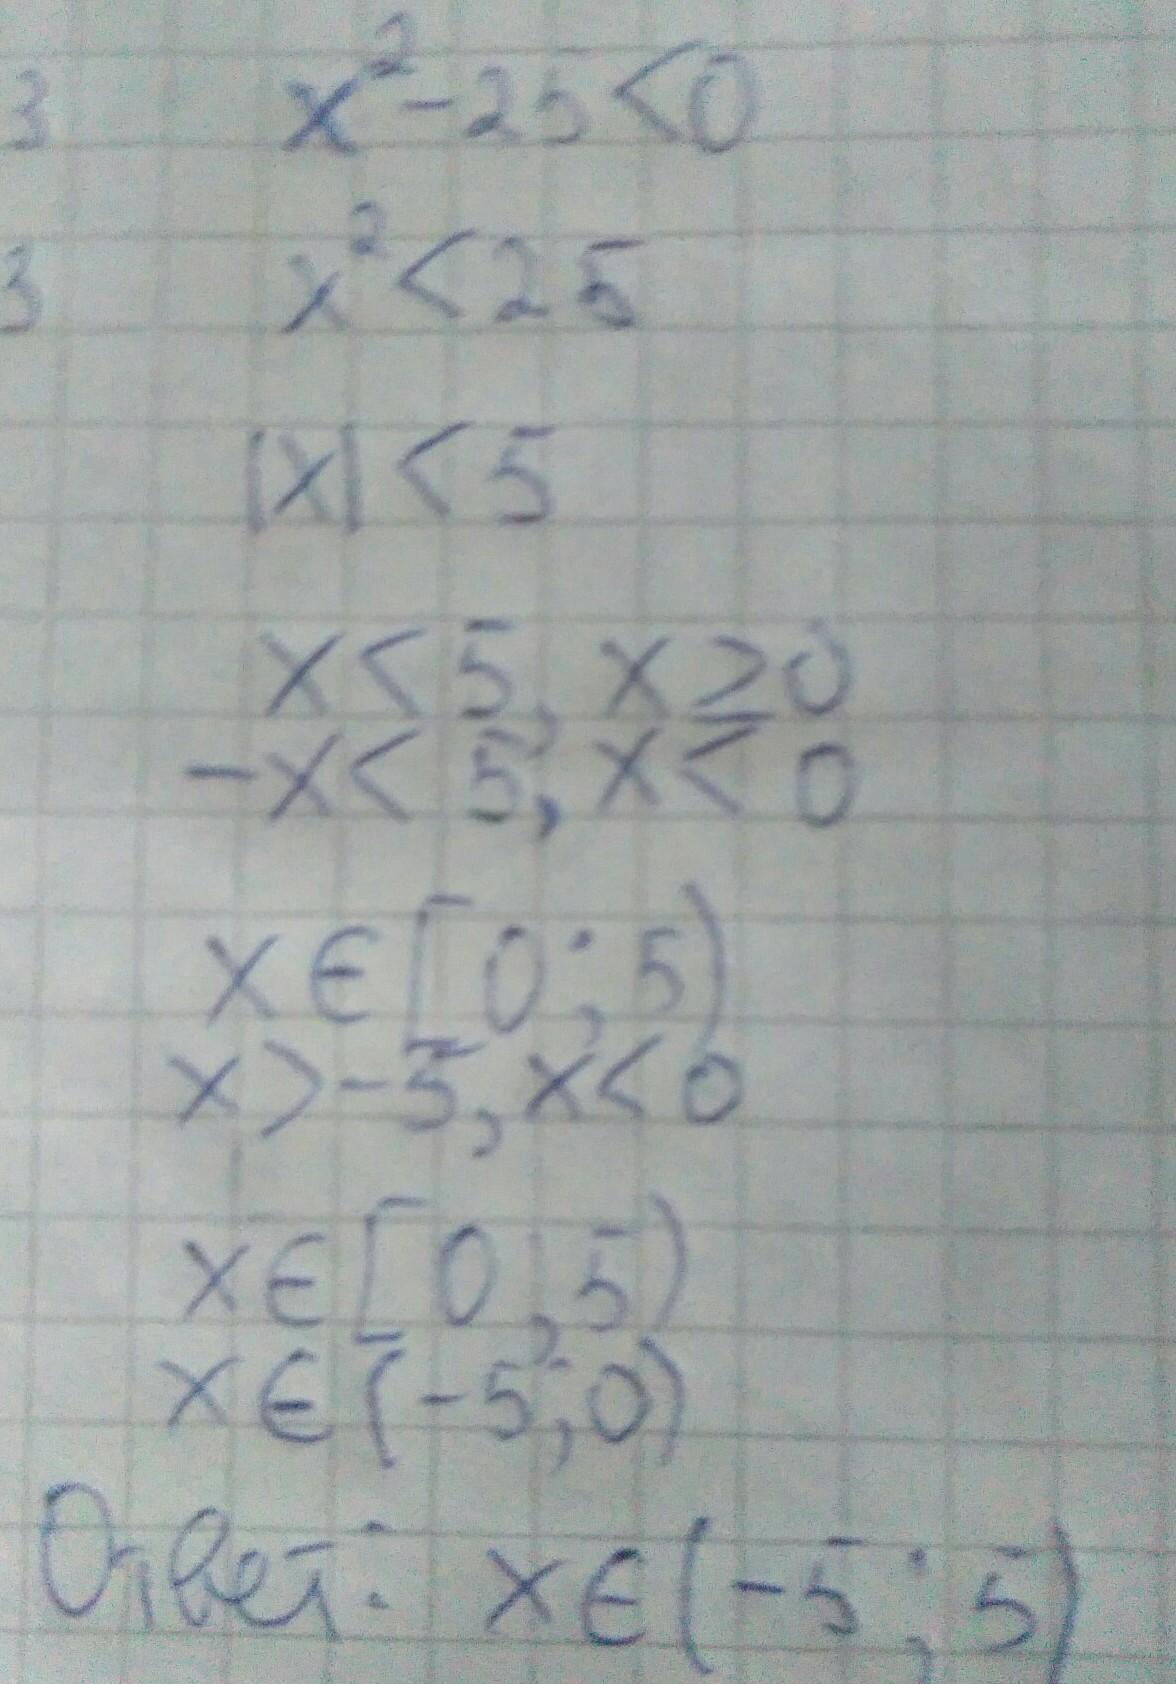 3 x²-25<0
3 x²<25
|x|<5
x<5, x≥0
-x<5, x<0
x∈[0;5)
x>-5, x<0
x∈[0;5)
x∈(-5;0)
Ответ: x∈(-5;5)